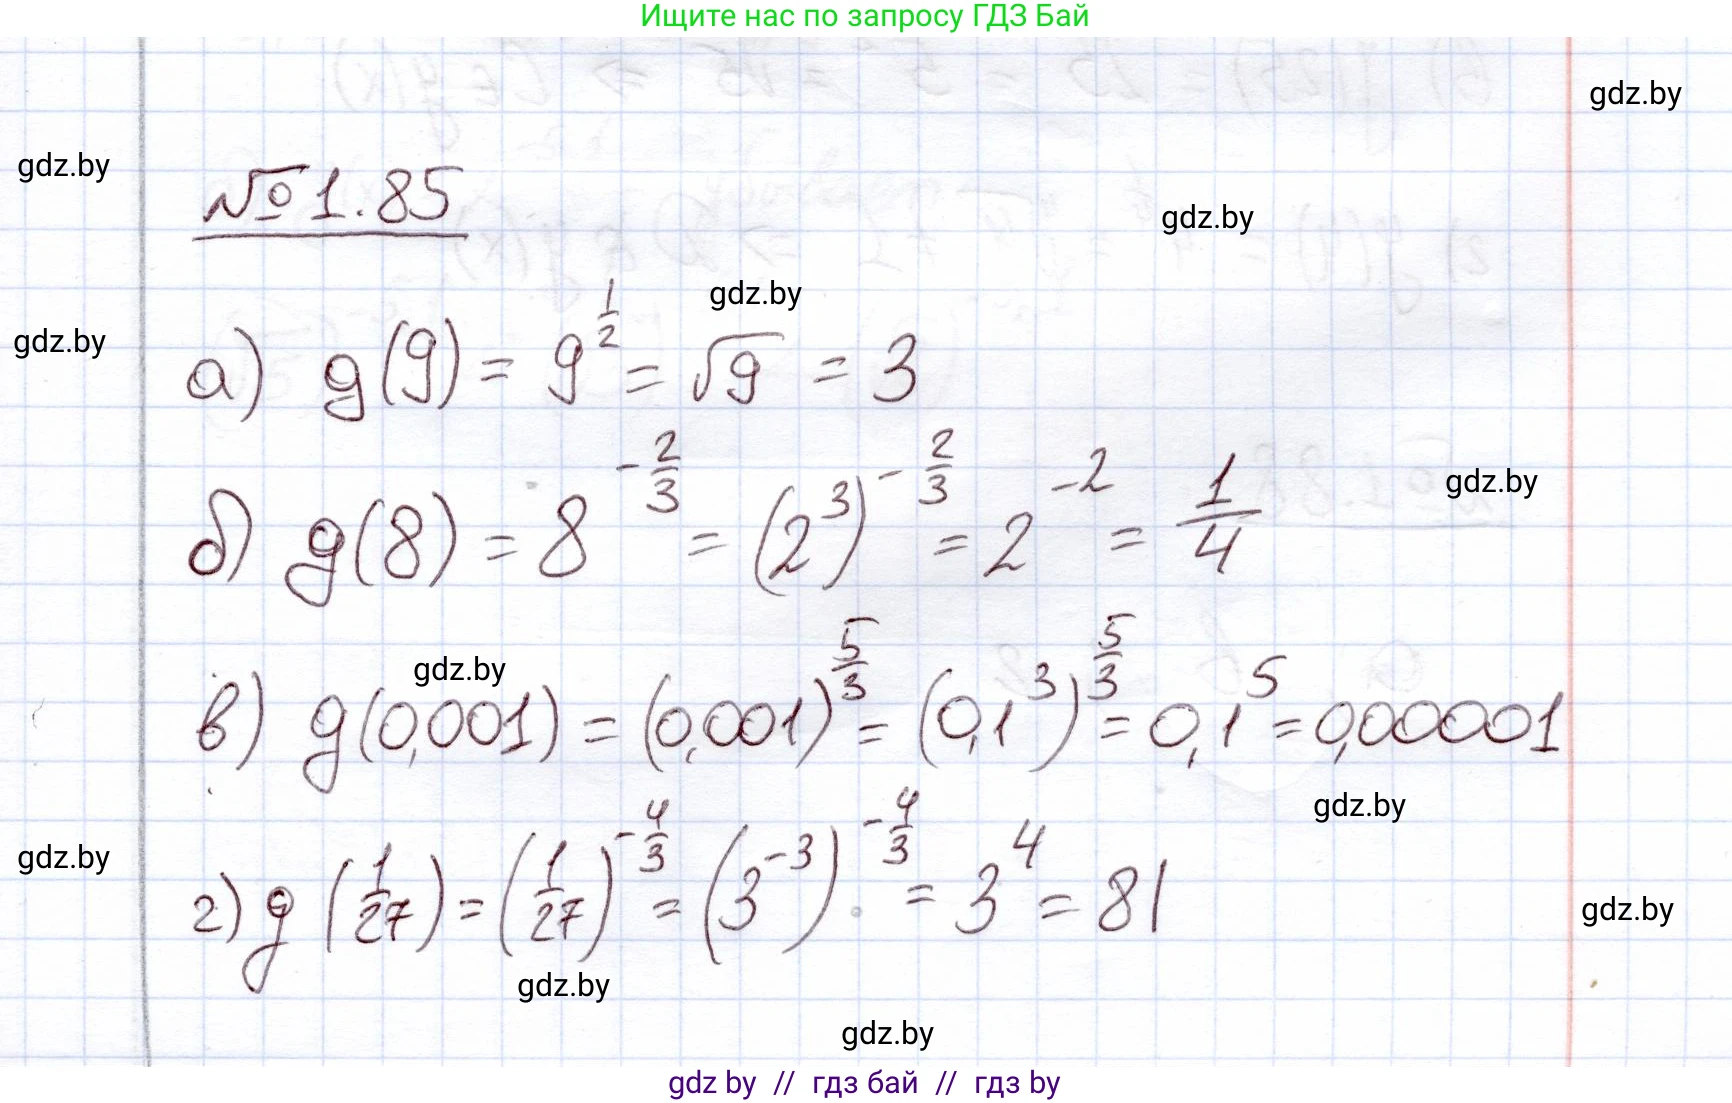 Ищите нас по запросу ГДЗ Бай
gdz.by
gdz.by
№1.85
gdz.by
gdz.by
gdz.by
а) g(9) = 9^{1/2} = √9 = 3
gdz.by
б) g(8) = 8^{-2/3} = (2^3)^{-2/3} = 2^{-2} = 1/4
gdz.by
в) g(0,001) = (0,001)^{5/3} = (0,1^3)^{5/3} = 0,1^5 = 0,00001
gdz.by
gdz.by
г) g(1/27) = (1/27)^{-4/3} = (3^{-3})^{-4/3} = 3^4 = 81
gdz.by
gdz.by
gdz.by
gdz by // гдз бай // гдз by